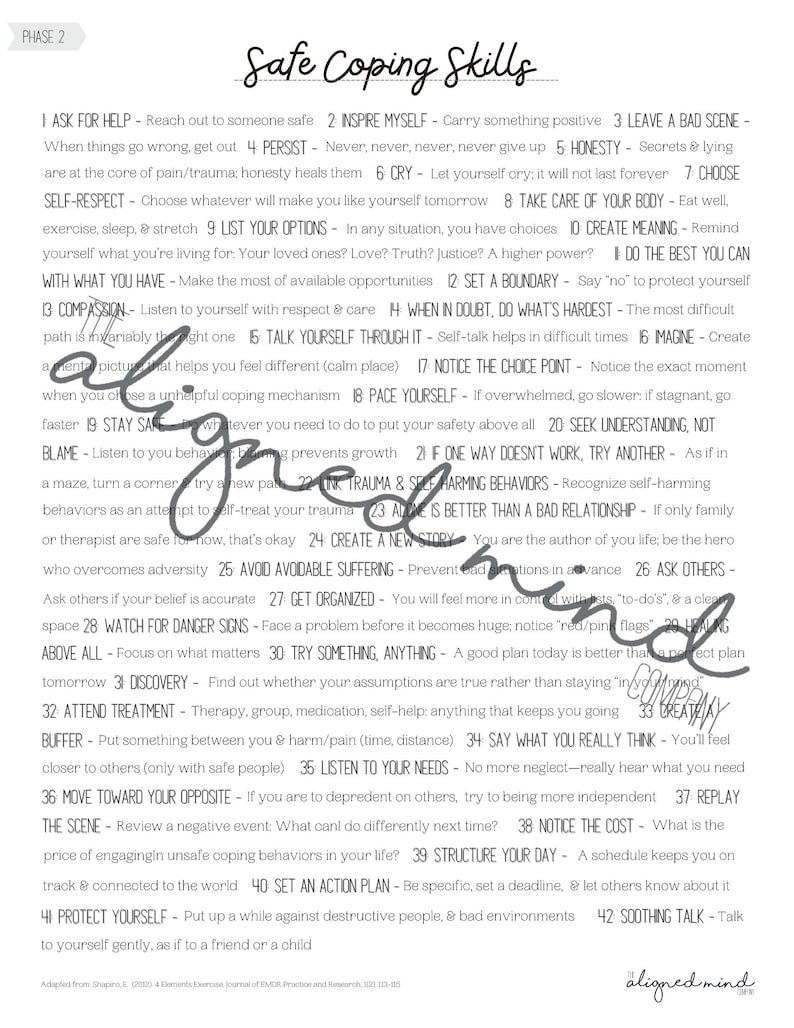 PHASE 2
Safe Coping Skills
1: ASK FOR HELP - Reach out to someone safe 2: INSPIRE MYSELF - Carry something positive 3: LEAVE A BAD SCENE -
When things go wrong, get out 4: PERSIST - Never, never, never, never give up 5: HONESTY - Secrets & lying
are at the core of pain/trauma; honesty heals them 6: CRY - Let yourself cry; it will not last forever 7: CHOOSE
SELF-RESPECT - Choose whatever will make you like yourself tomorrow 8: TAKE CARE OF YOUR BODY - Eat well,
exercise, sleep, & stretch 9: LIST YOUR OPTIONS - In any situation, you have choices 10: CREATE MEANING - Remind
yourself what you're living for: Your loved ones? Love? Truth? Justice? A higher power? 11: DO THE BEST YOU CAN
WITH WHAT YOU HAVE - Make the most of available opportunities 12: SET A BOUNDARY - Say "no" to protect yourself
13: COMPASSION - Listen to yourself with respect & care 14: WHEN IN DOUBT, DO WHAT'S HARDEST - The most difficult
path is invariably the right one 15: TALK YOURSELF THROUGH IT - Self-talk helps in difficult times 16: IMAGINE - Create
a mental picture that helps you feel different (calm place) 17: NOTICE THE CHOICE POINT - Notice the exact moment
when you chose a unhelpful coping mechanism 18: PACE YOURSELF - If overwhelmed, go slower: if stagnant, go
faster 19: STAY SAFE - Do whatever you need to do to put your safety above all 20: SEEK UNDERSTANDING, NOT
BLAME - Listen to you behavior; blaming prevents growth 21: IF ONE WAY DOESN'T WORK, TRY ANOTHER - As if in
a maze, turn a corner & try a new path 22: LINK TRAUMA & SELF HARMING BEHAVIORS - Recognize self-harming
behaviors as an attempt to self-treat your trauma 23: ALONE IS BETTER THAN A BAD RELATIONSHIP - If only family
or therapist are safe for now, that's okay 24: CREATE A NEW STORY - You are the author of you life; be the hero
who overcomes adversity 25: AVOID AVOIDABLE SUFFERING - Prevent bad situations in advance 26: ASK OTHERS -
Ask others if your belief is accurate 27: GET ORGANIZED - You will feel more in control with lists, "to-do's", & a clean
space 28: WATCH FOR DANGER SIGNS - Face a problem before it becomes huge; notice "red/pink flags" 29: HEALING
ABOVE ALL - Focus on what matters 30: TRY SOMETHING, ANYTHING - A good plan today is better than a perfect plan
tomorrow 31: DISCOVERY - Find out whether your assumptions are true rather than staying "in your mind"
32: ATTEND TREATMENT - Therapy, group, medication, self-help: anything that keeps you going 33: CREATE A
BUFFER - Put something between you & harm/pain (time, distance) 34: SAY WHAT YOU REALLY THINK - You'll feel
closer to others (only with safe people) 35: LISTEN TO YOUR NEEDS - No more neglect—really hear what you need
36: MOVE TOWARD YOUR OPPOSITE - If you are to depredent on others, try to being more independent 37: REPLAY
THE SCENE - Review a negative event: What canI do differently next time? 38: NOTICE THE COST - What is the
price of engagingIn unsafe coping behaviors in your life? 39: STRUCTURE YOUR DAY - A schedule keeps you on
track & connected to the world 40: SET AN ACTION PLAN - Be specific, set a deadline, & let others know about it
41: PROTECT YOURSELF - Put up a while against destructive people, & bad environments 42: SOOTHING TALK - Talk
to yourself gently, as if to a friend or a child
THE
aligned mind
COMPANY
Adapted from: Shapiro, E. (2012). 4 Elements Exercise. Journal of EMDR Practice and Research, 1(2), 113-115
THE
aligned mind
COMPANY